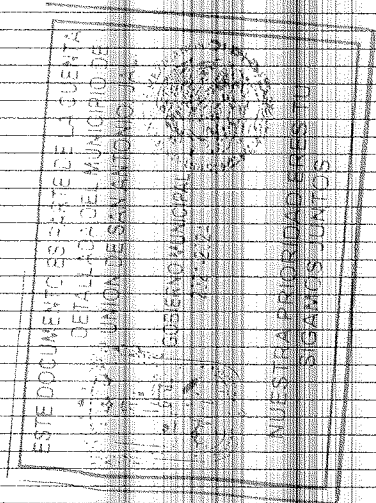 ESTE DOCUMENTO ES PARTE DE LA CUENTA
DETALLADA DEL MUNICIPIO DE
UNION DE SAN ANTONIO, JAL.
GOBIERNO MUNICIPAL
NUESTRA PRIORIDAD ERES TU
SIGAMOS JUNTOS